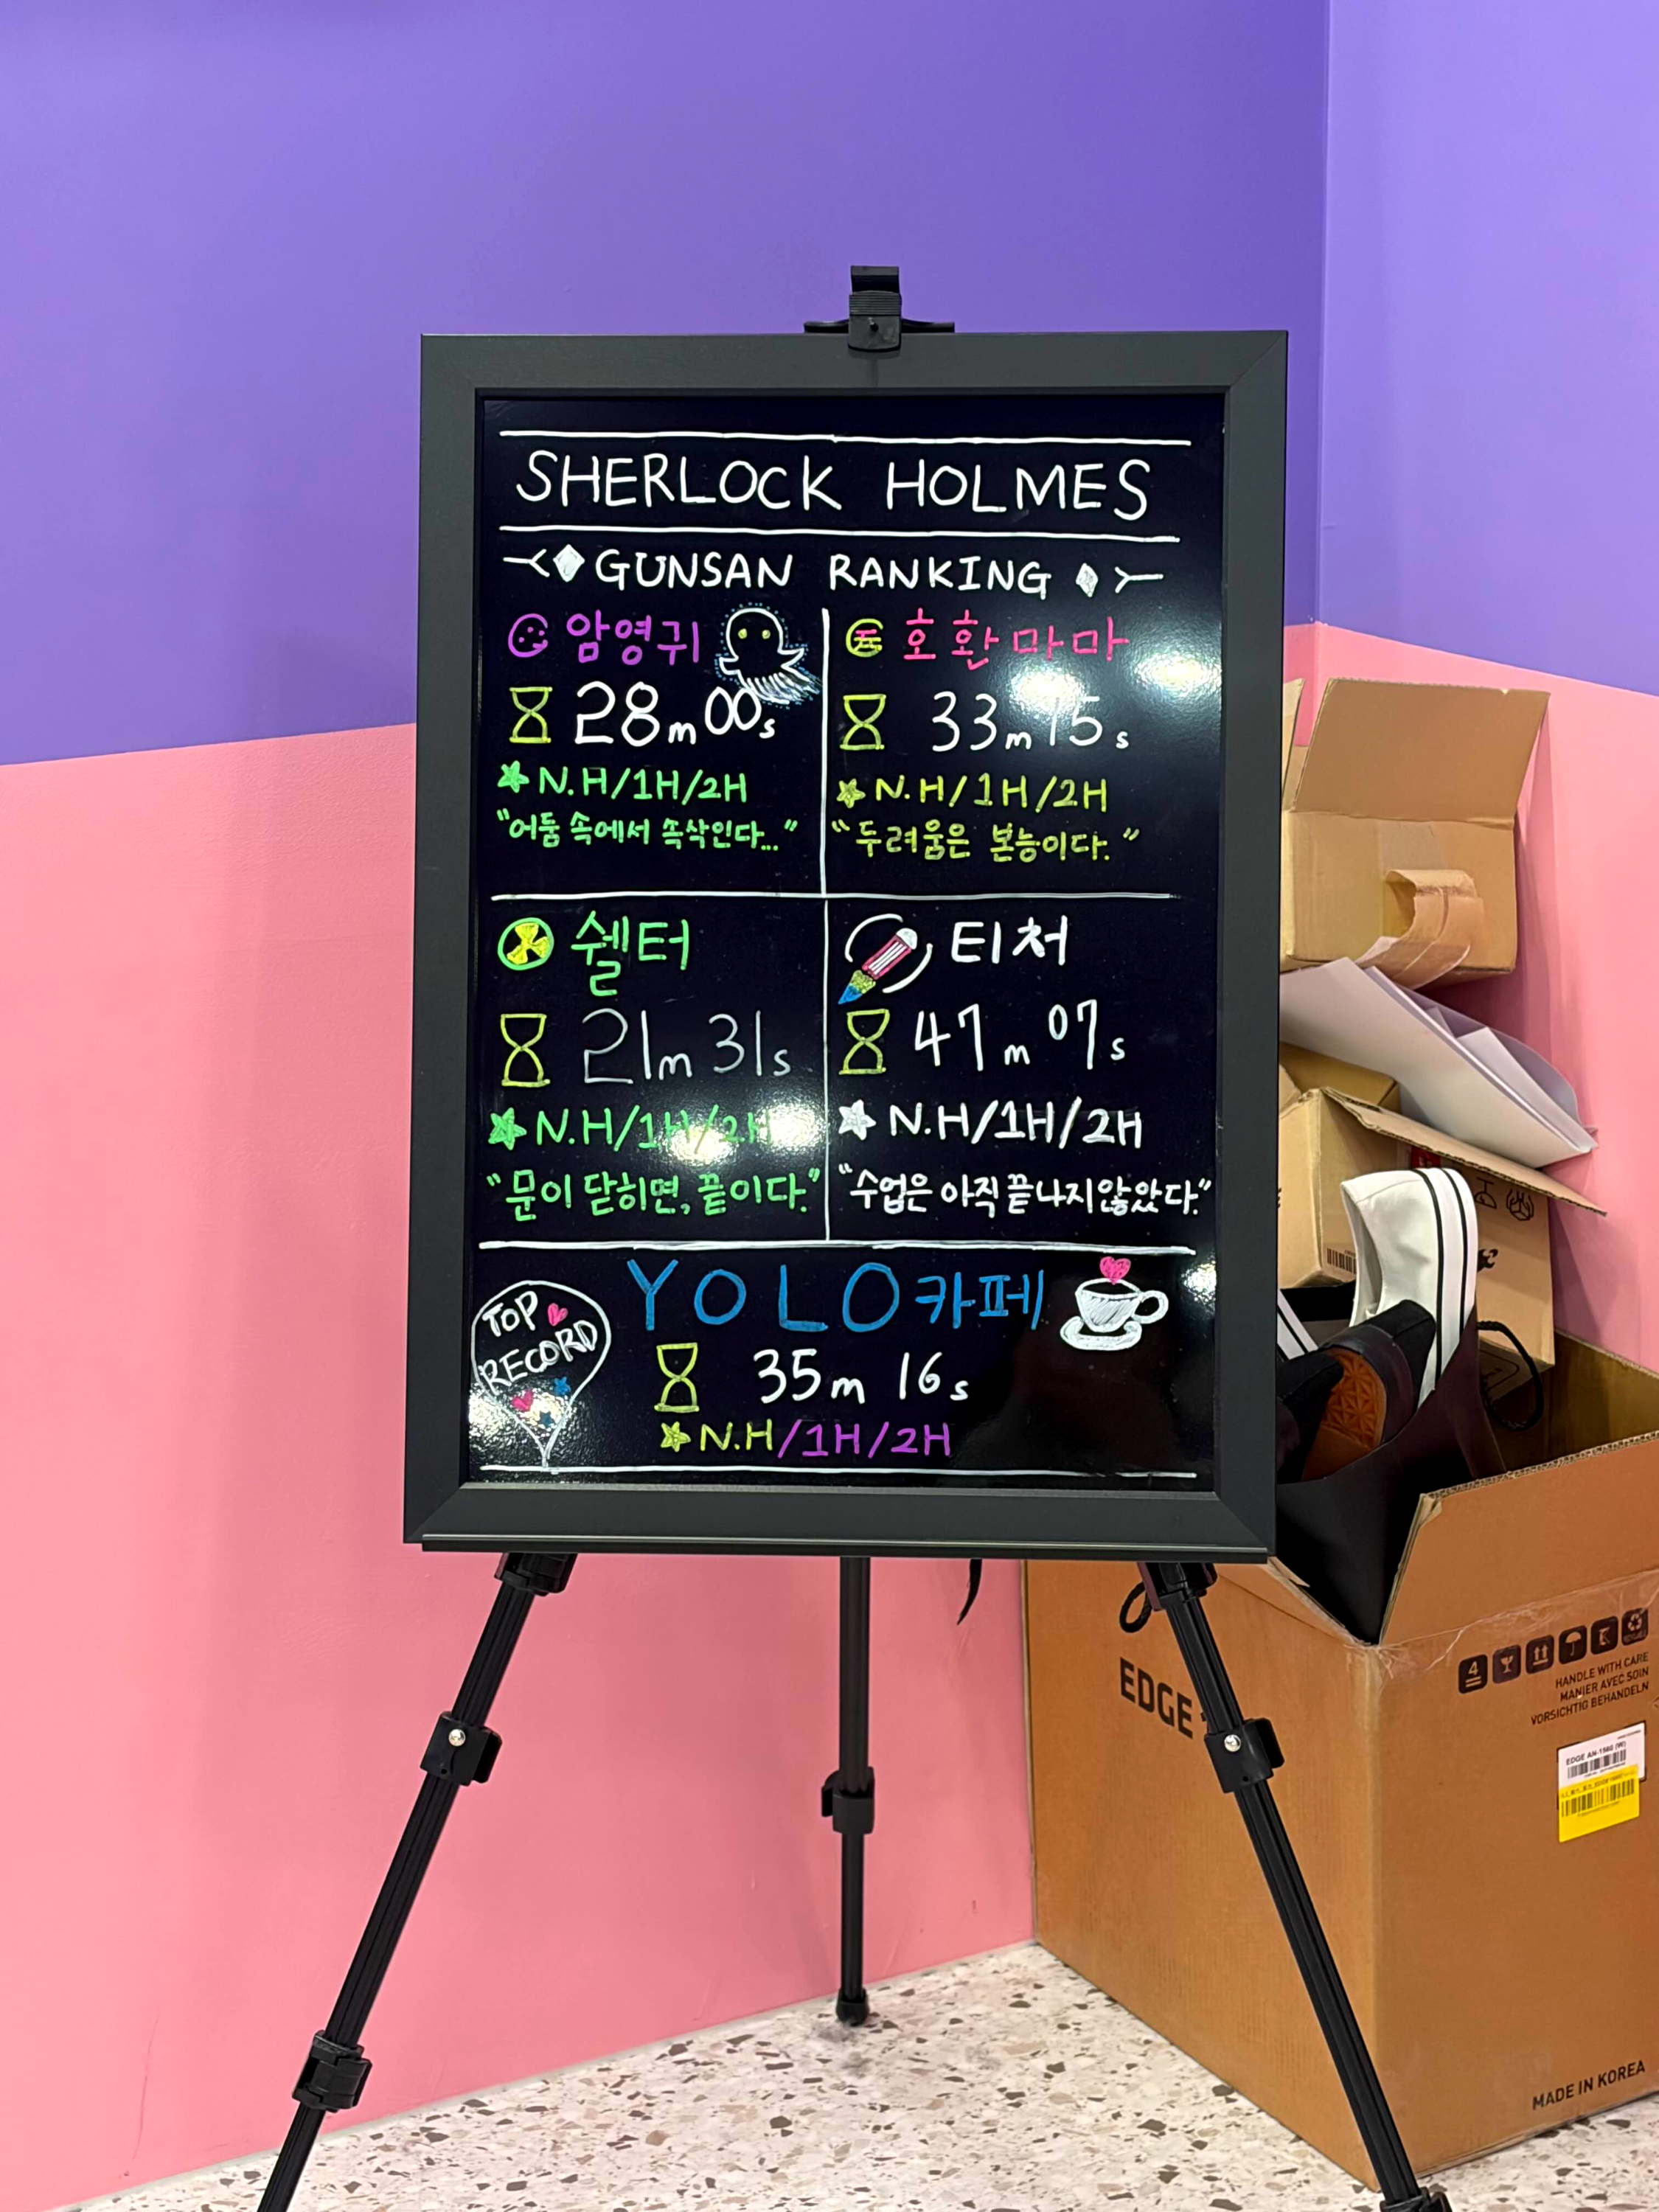 SHERLOCK HOLMES
GUNSAN RANKING
암영귀
28m 00s
N.H/1H/2H
"어둠 속에서 속삭인다..."
호환마마
33m 15s
N.H/1H/2H
"두려움은 본능이다."
쉘터
21m 31s
N.H/1H/2H
"문이 닫히면, 끝이다."
티처
47m 07s
N.H/1H/2H
"수업은 아직 끝나지 않았다."
TOP
RECORD
YOLO 카페
35m 16s
N.H/1H/2H
EDGE
4
HANDLE WITH CARE
MANIER AVEC SOIN
VORSICHTIG BEHANDELN
EDGE AN-1560 (W)
MADE IN KOREA